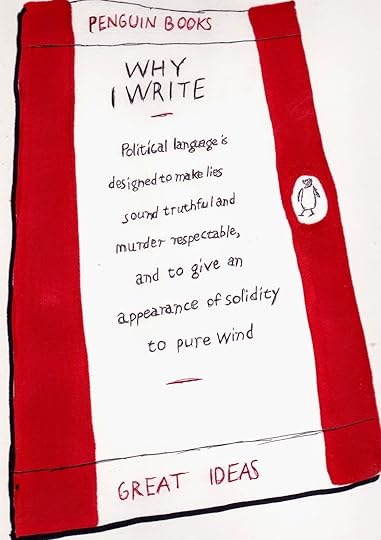 PENGUIN BOOKS
WHY
I WRITE
Political language is
designed to make lies
sound truthful and
murder respectable,
and to give an
appearance of solidity
to pure wind
GREAT IDEAS